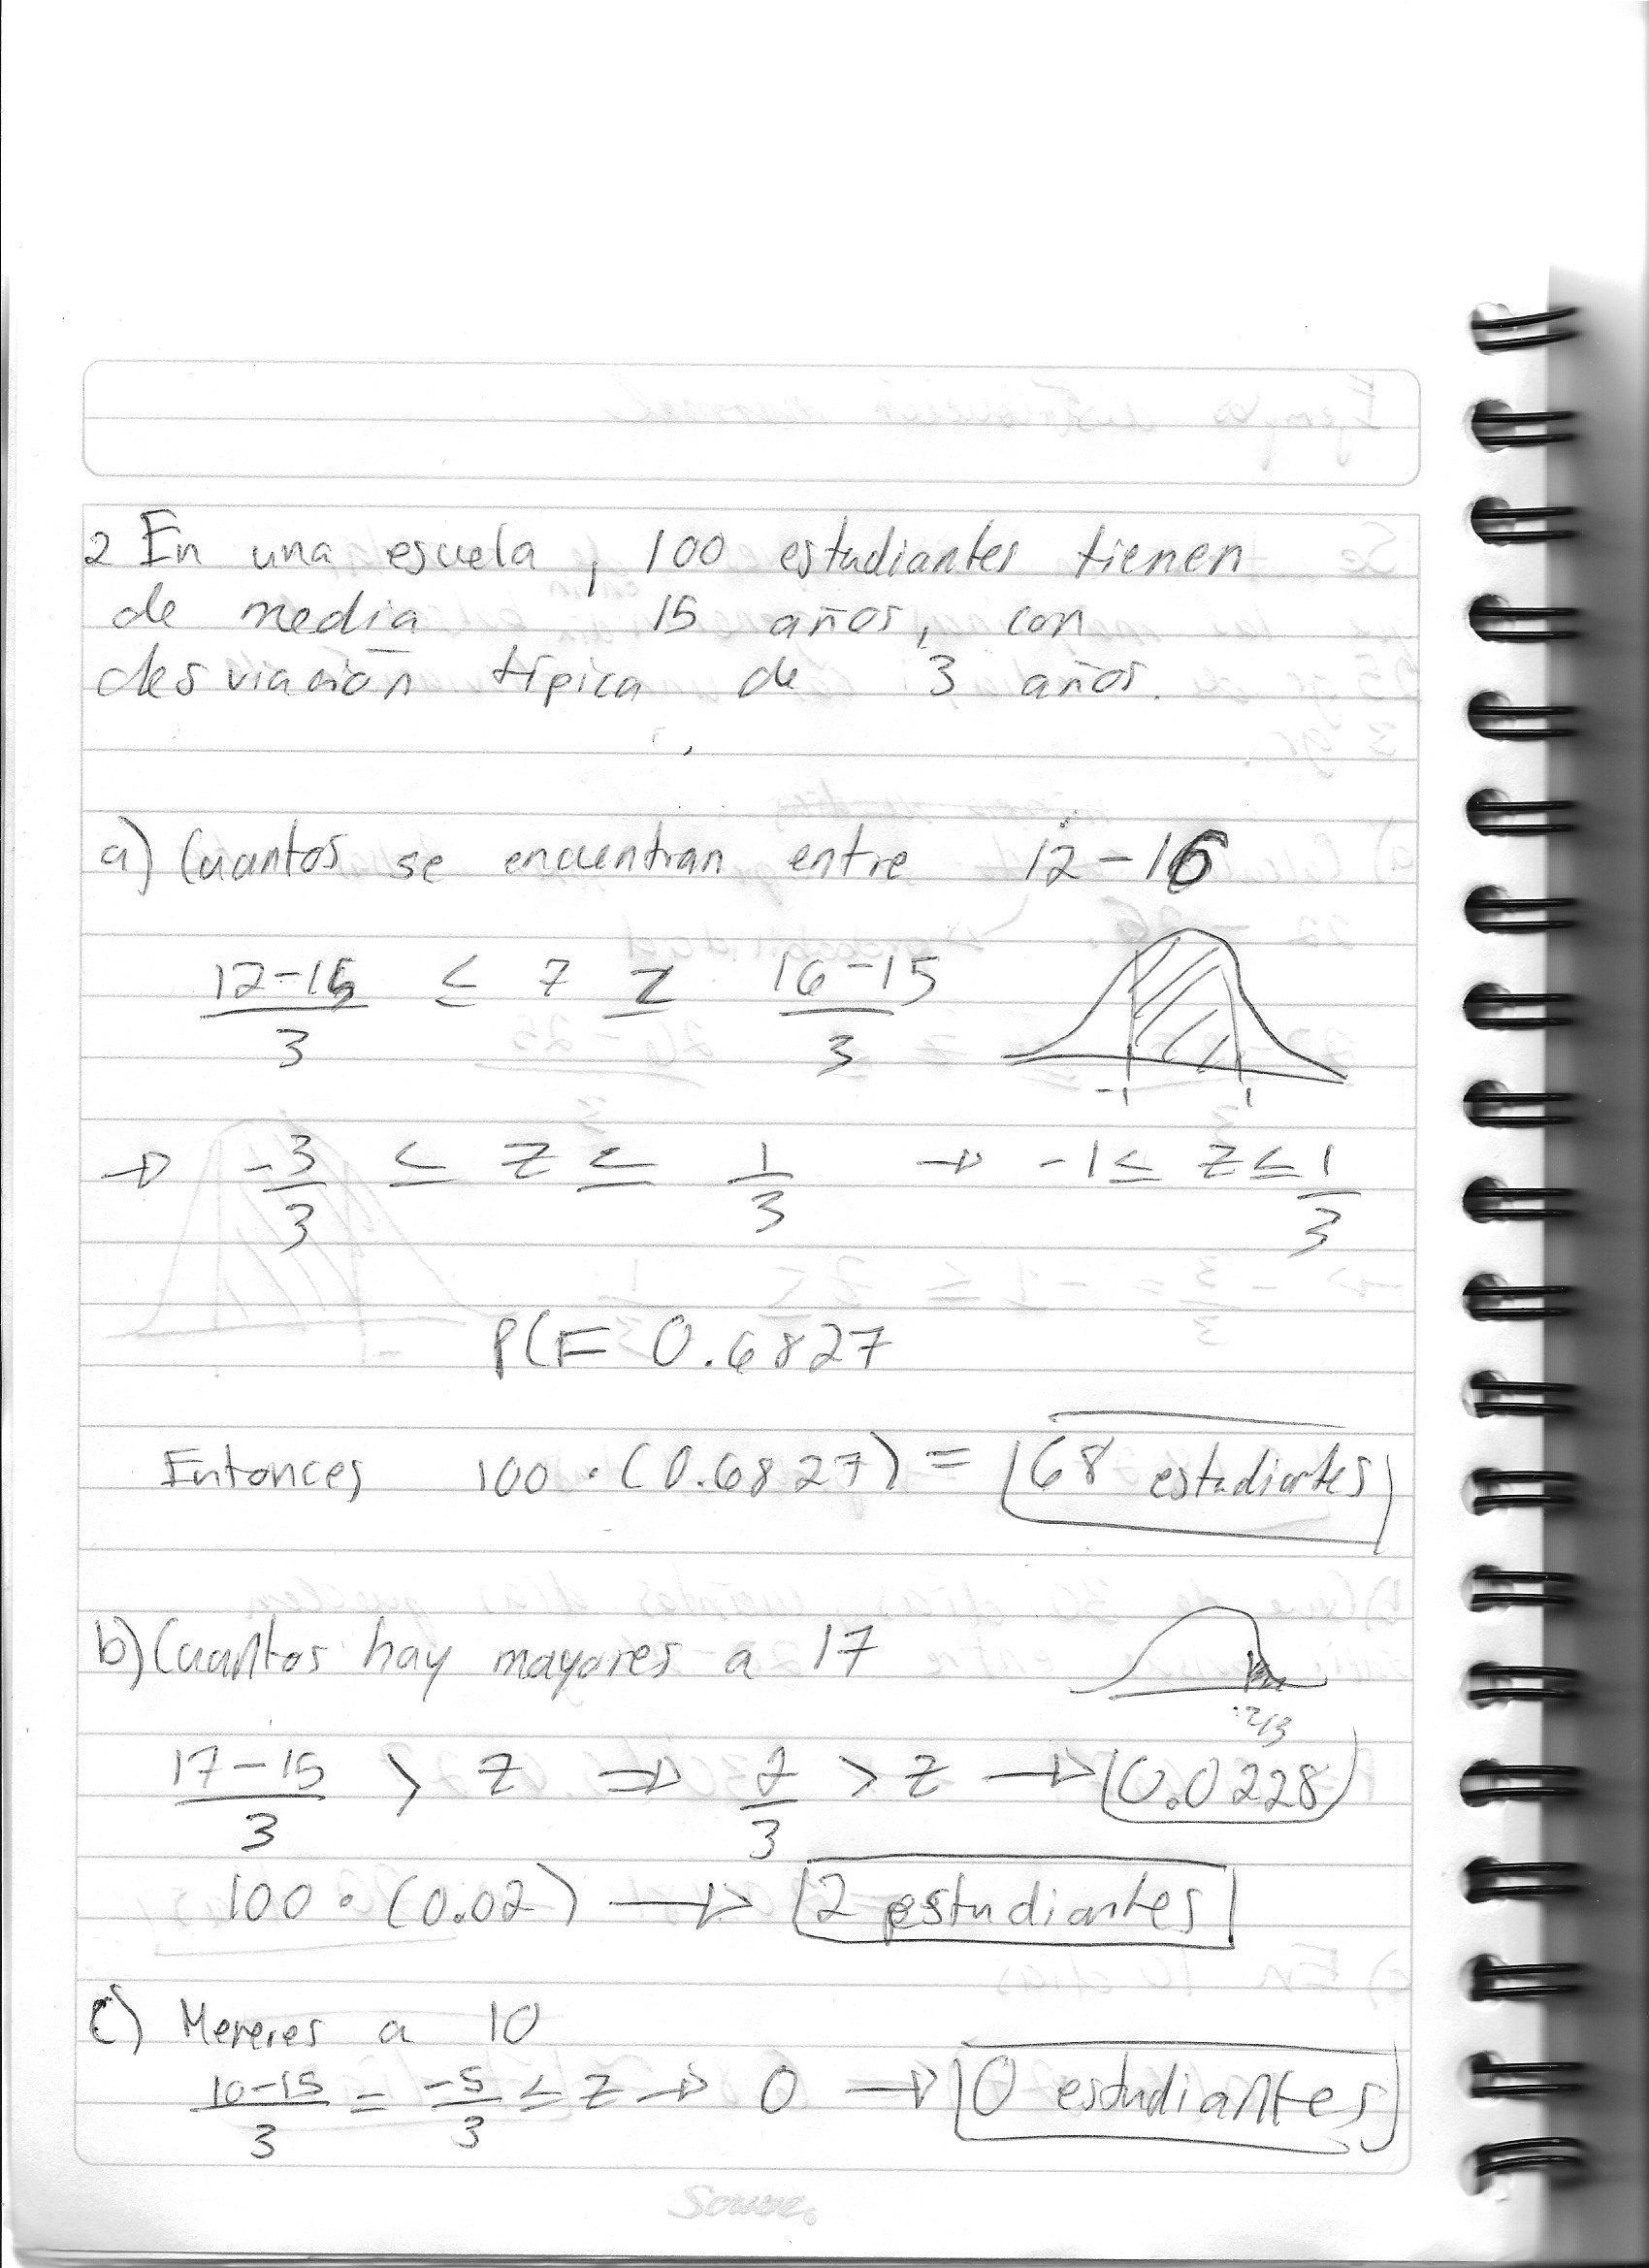 2 En una escuela, 100 estudiantes tienen
de media 15 años, con
desviación típica de 3 años.
a) Cuantos se encuentran entre 12-16
12-15/3 ≤ z ≤ 16-15/3
-1 1
→ -3/3 ≤ z ≤ 1/3 → -1 ≤ z ≤ 1/3
P(= 0.6827
Entonces 100 · (0.6827) = 68 estudiantes
b) Cuantos hay mayores a 17
2/3
17-15/3 > z ⇒ 2/3 > z → 0.0228
100 · (0.02) → 2 estudiantes
c) Menores a 10
10-15/3 = -5/3 ≤ z → 0 → 0 estudiantes
Scribe